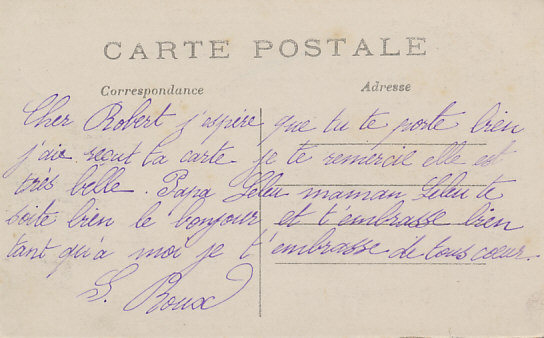 CARTE POSTALE
Correspondance Adresse
Cher Robert j'espère que tu te porte bien
j'aie reçut ta carte je te remercie elle est
très belle. Papa Leleu maman Leleu te
soite bien le bonjour et t'embrasse bien
tant qu'a moi je t'embrasse de tous cœur.
Roux